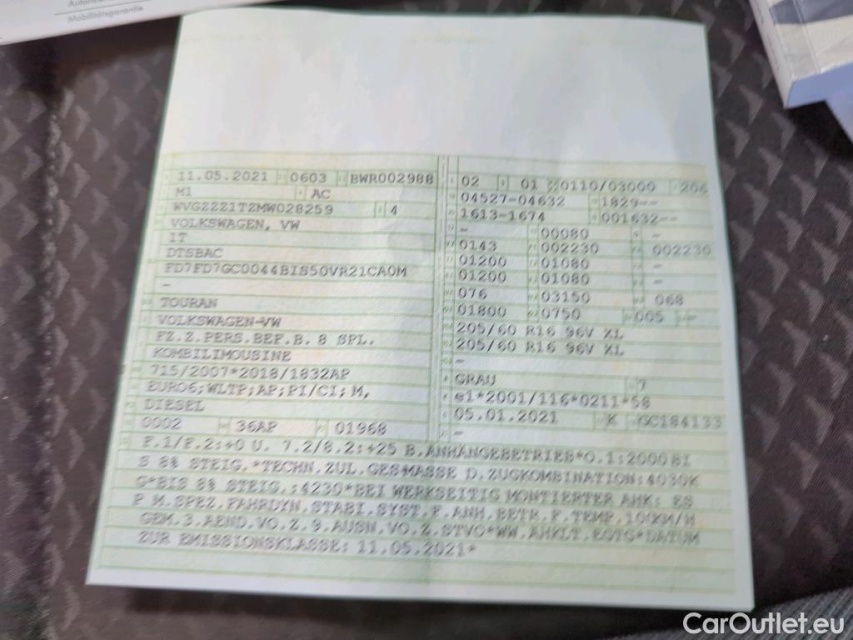 Mobilitätsgarantie
11.05.2021 0603 BWR002988
M1 AC
WVGZZZ1TZMW028259 4
VOLKSWAGEN, VW
1T
DTSBAC
FD7FD7GC0044BIS50VR21CA0M
-
TOURAN
VOLKSWAGEN-VW
FZ.Z.PERS.BEF.B. 8 SPL.
KOMBILIMOUSINE
715/2007*2018/1832AP
EURO6;WLTP;AP;PI/CI; M,
DIESEL
0002 36AP 01968
02 01 0110/03000 206
04527-04632 1829--
1613-1674 001632--
- 00080 -
0143 002230 002230
01200 01080 -
01200 01080 -
076 03150 068
01800 0750 005 --
205/60 R16 96V XL
205/60 R16 96V XL
-
GRAU 7
e1*2001/116*0211*58
05.01.2021 K GC184133
-
F.1/F.2:+0 U. 7.2/8.2:+25 B.ANHÄNGEBETRIEB*O.1:2000BI
S 8% STEIG.*TECHN.ZUL.GES*MASSE D.ZUGKOMBINATION:4030K
G*BIS 8% STEIG.:4230*BEI WERKSEITIG MONTIERTER AHK: ES
P M.SPEZ.FAHRDYN.STABI.SYST.F.ANH.BETR.F.TEMP.100KM/H
GEM.3.AEND.VO.Z.9.AUSN.VO.Z.STVO*WW.AHKLT.EGTG*DATUM
ZUR EMISSIONSKLASSE: 11.05.2021*
CarOutlet.eu